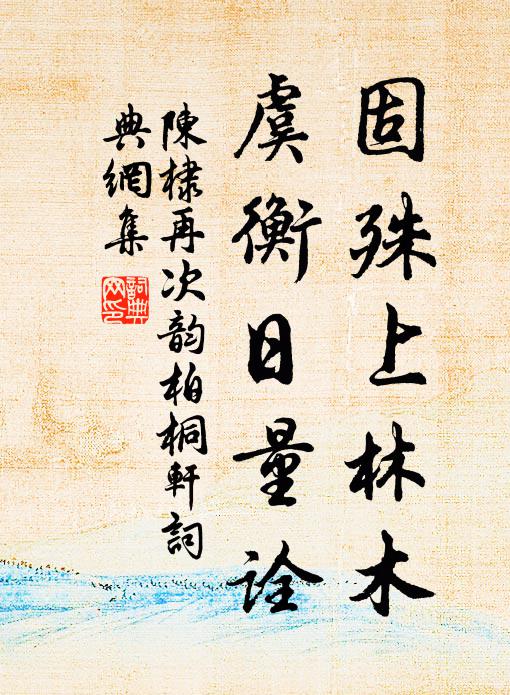 固殊上林木
虞衡日量詮
陳棣再次韵柏桐軒詞
典網集
詞典
网印